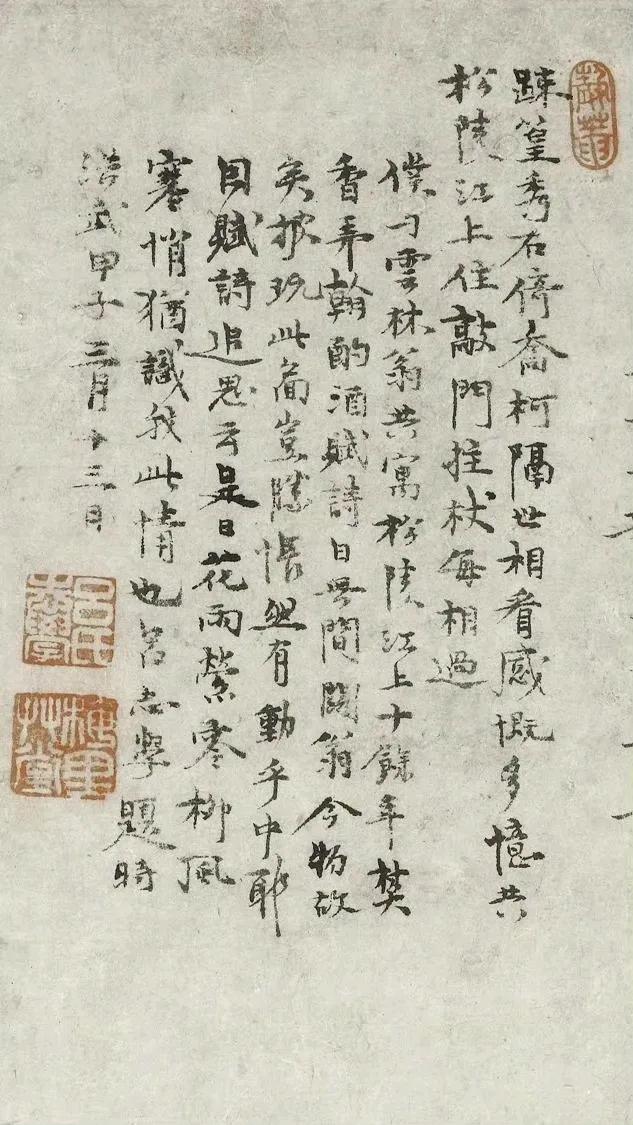 踈篁秀石倚喬柯隔世相看感慨多憶共
松陵江上住敲門拄杖每相過
僕与雲林翁共寓松陵江上十餘年焚
香弄翰酌酒賦詩日無間闕翁今物故
矣披玩此啚豈勝悵然有動乎中耶
因賦詩追思云是日花雨縈零柳風
寒悄猶識我此情也呂志學題時
洪武甲子三月十三日